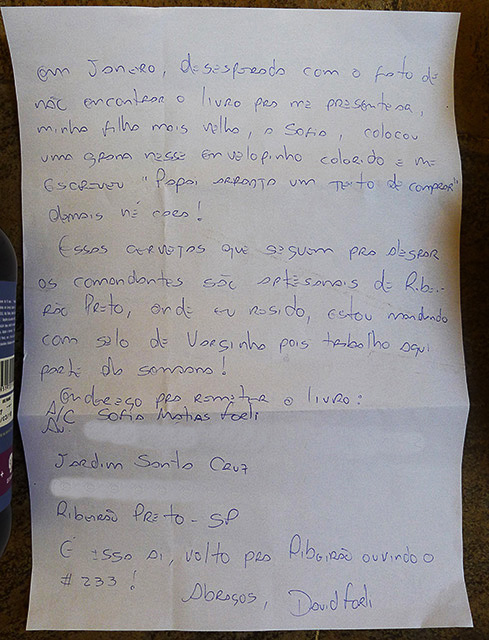 Em Janeiro, desesperada com o fato de
não encontrar o livro pra me presentear,
minha filha mais velha, a Sofia, colocou
uma grana nesse envelopinho colorido e me
escreveu "Papai arranja um jeito de comprar"
demais né cara!
Essas cervejas que seguem pra alegrar
os comandantes são artesanais de Ribei-
rão Preto, onde eu resido, estou mandando
com selo de Varginha pois trabalho aqui
parte da semana!
Endereço pra remeter o livro:
A/C Sofia Matias Faeli
Av.
Jardim Santa Cruz
Ribeirão Preto - SP
É isso aí, volto pra Ribeirão ouvindo o
#233! Abraços, David Faeli